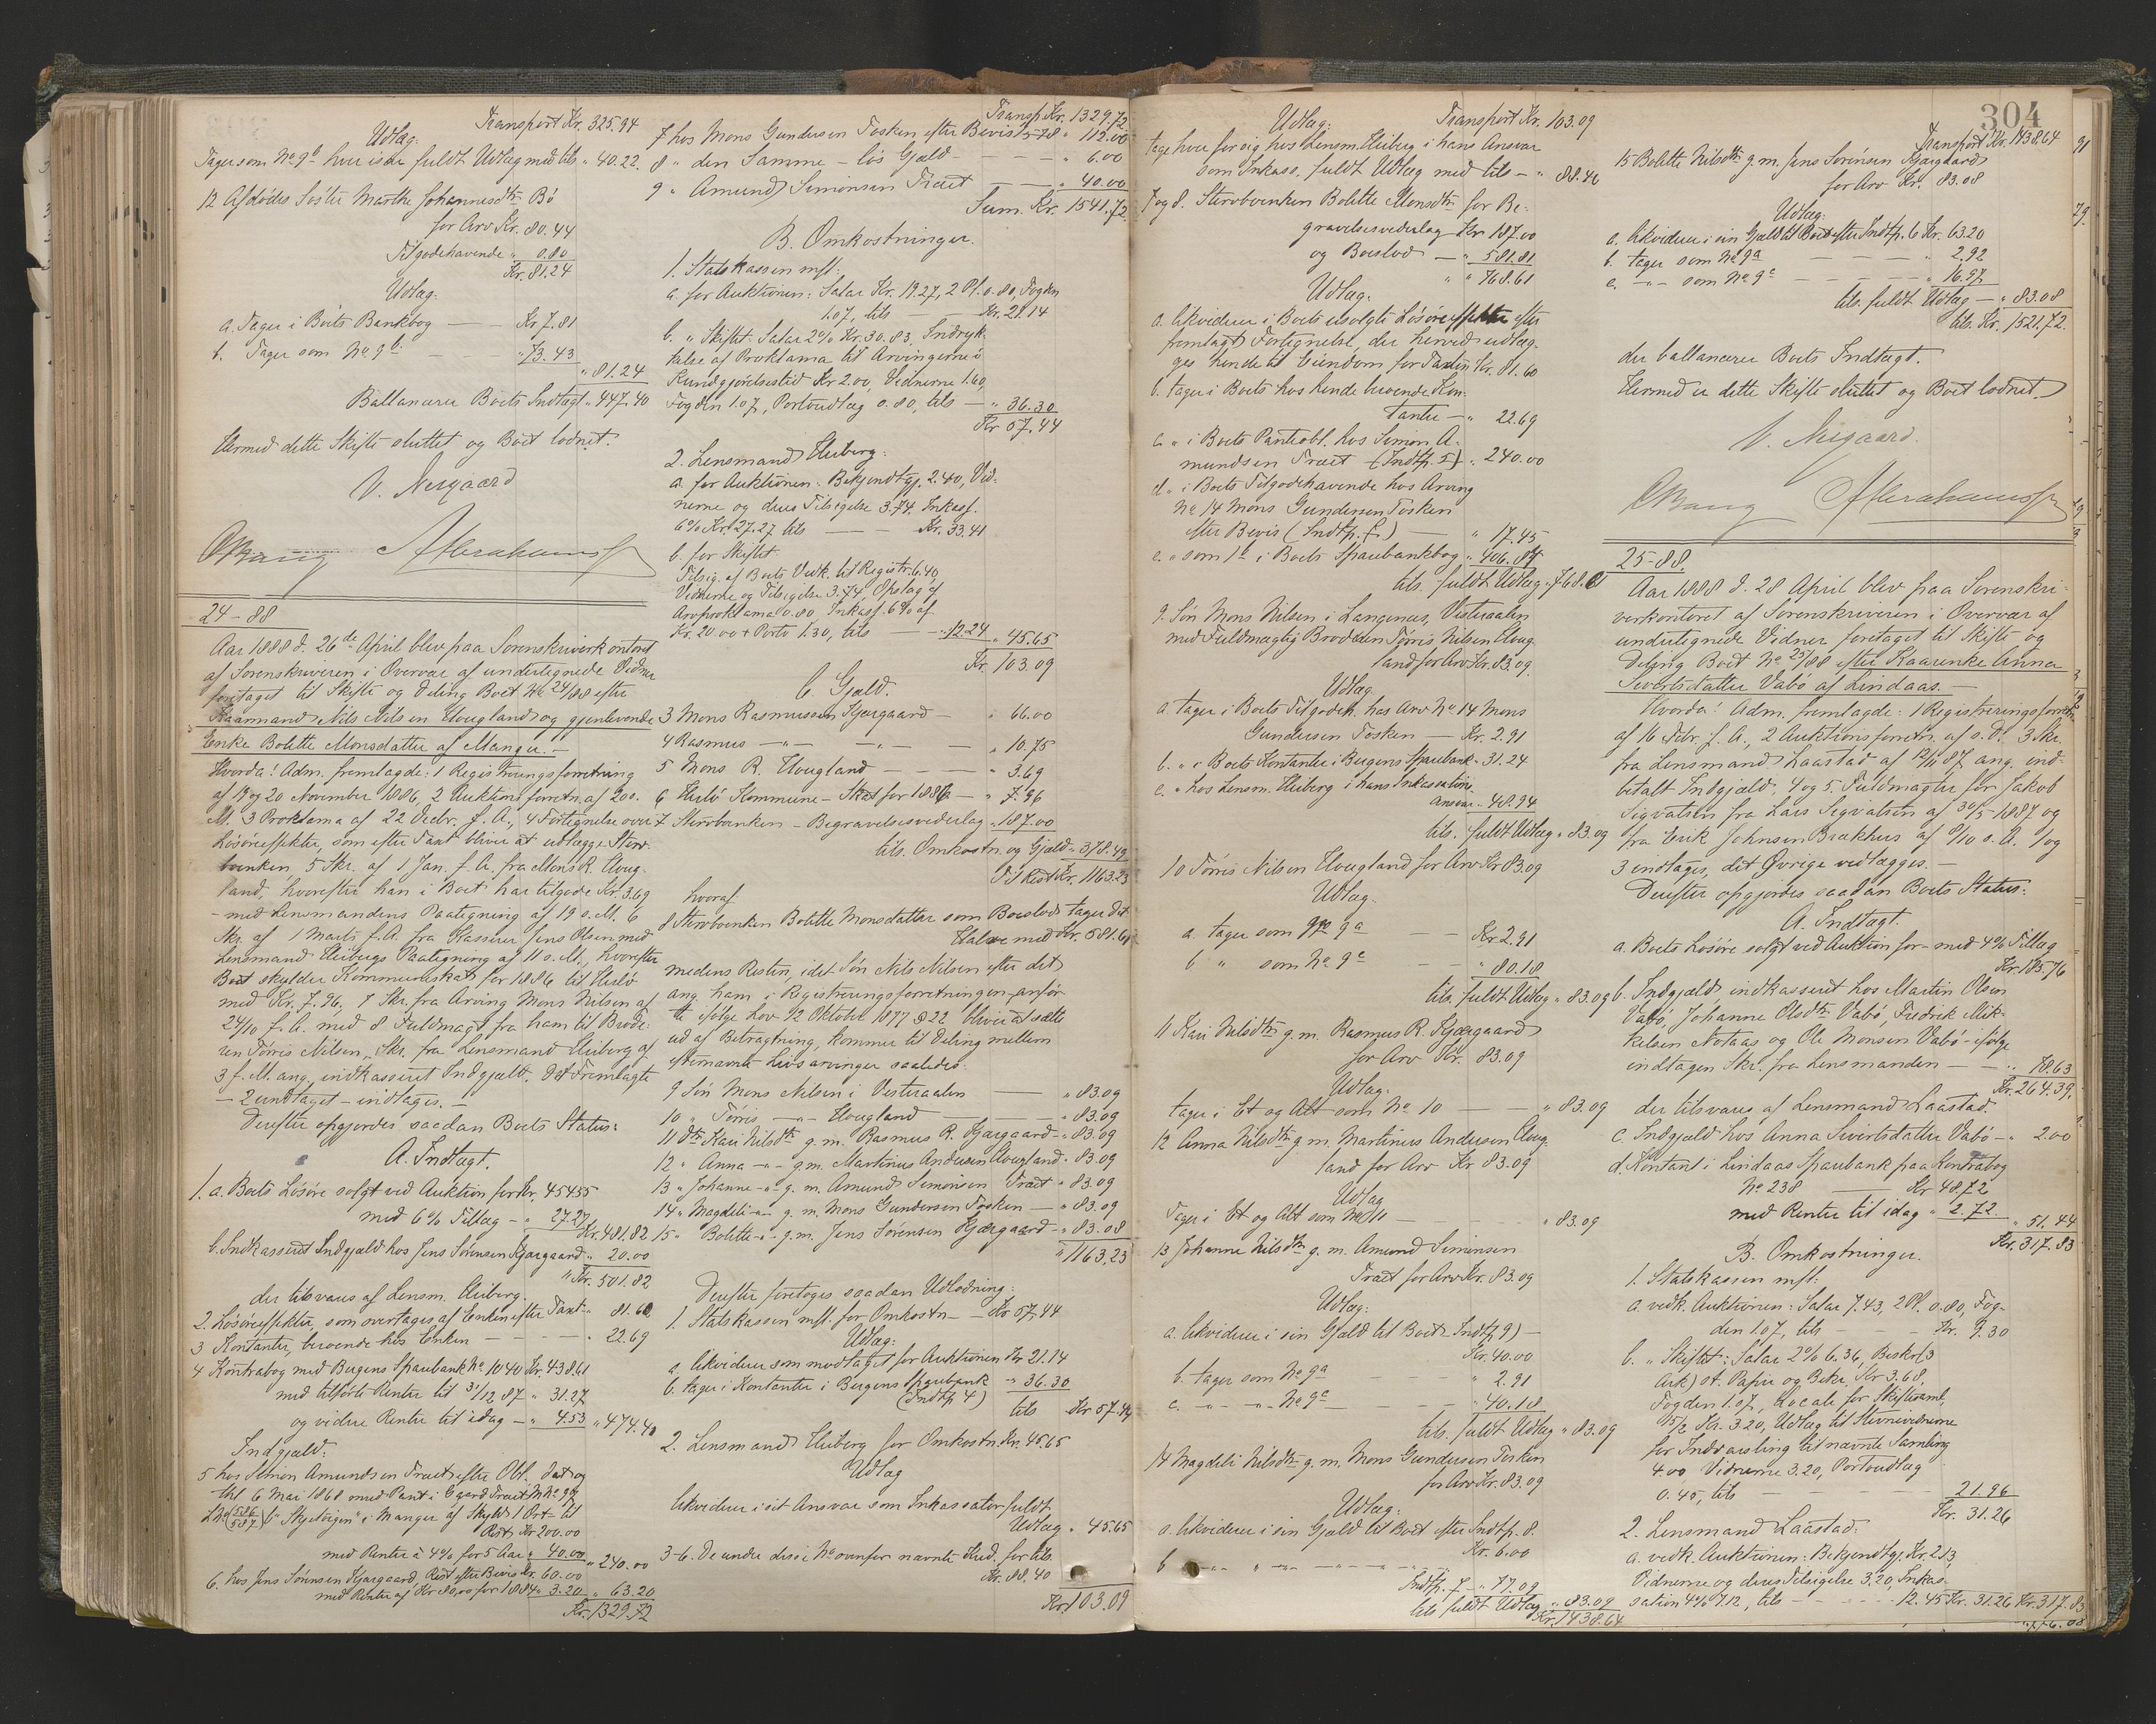 Transport Kr. 325.94
Udlæg:
Tager som No 9b hver især fuldt Udlæg med tils „ 40.22.
12 Afdødes Søster Marthe Johannesdtr Bø
for Arv Kr. 80.44
Tilgodehavende „ 0.80
Kr. 81.24
Udlæg:
a. Tager i Boets Bankbog — Kr 7.81
b. Tager som No 9b — „ 73.43
„ 81.24
Ballancerer Boets Indtægt „ 447.40
Hermed dette Skifte sluttet og Boet lodnet.
V. Nesgaard
OBang Abrahamsen
24-88
Aar 1888 d. 26de April blev paa Sorenskriverkontoret
af Sorenskriveren i Overvær af undertegnede Vidner
foretaget til Skifte og Deling Boet No 24/88 efter
Kaarmand Nils Nilsen Hougland og gjenlevende
Enke Bolette Monsdatter af Manger. —
Hvorda! Adm. fremlagde: 1 Registreringsforretning
af 19 og 20 November 1886, 2 Auktionsforretn. af 20 s.
M. 3 Proklama af 22 Decbr. f. A., 4 Fortegnelse over
Løsøreeffekter, som efter Taxt bliver at udlægge Sterv-
boenken, 5 Skr. af 1 Jan. f. A. fra Mons R. Houg-
land, hvorefter han i Boet har tilgode Kr. 3.69
– med Lensmandens Paategning af 19 s. M. 6
Skr. af 1 Marts f. A. fra Kasserer Jens Olsen med
Lensmand Heibergs Paategning af 11 s. M., hvorefter
Boet skylder Kommuneskat for 1886 til Herlø
med Kr. 7.96, 7 Skr. fra Arving Mons Nilsen af
24/10 f. A. med 8 Fuldmagt fra ham til Brode-
ren Tørris Nilsen, Skr. fra Lensmand Heiberg af
3 f. M. ang. indkasseret Indgjæld. Det Fremlagte
— 2 undtaget – indtages. —
Derefter opgjordes saadan Boets Status:
A. Indtægt.
1. a. Boets Løsøre solgt ved Auktion for Kr. 454.55
med 6% Tillæg — „ 27.27
Kr. 481.82
b. Indkasseret Indgjæld hos Jens Sørensen Kjærgaard „ 20.00
„ Kr. 501.82
der tilsvares af Lensm. Heiberg.
2. Løsøreeffekter, som overtages af Enken efter Taxt „ 81.60
3 Kontanter, beroende hos Enken — — „ 22.69
4 Kontrabog med Bergens Sparebank No 1040 Kr. 438.61
med tilførte Renter til 31/12 87 „ 31.27
og videre Renter til idag — „ 4.53 „ 474.40
Indgjæld:
5 hos Simon Amundsen Træet efter Obl. dat og
thl. 6 Mai 1868 med Pant i Gaard Træet
„Skjetorgen“ i Manger af Skyld 1 Ort – til
Rest Kr 200.00
med Renter à 4% for 5 Aar „ 40.00 „ 240.00
6. hos Jens Sørensen Kjærgaard, Rest efter Bevis Kr. 60.00
med Renter af Kr 80.00 for 1884 „ 3.20 „ 63.20
Kr. 1329.72
Transp. Kr. 1329.72
7 hos Mons Gundersen Tosken efter Bevis „ 112.00
8 „ den Samme – løs Gjæld — — „ 6.00
9 „ Amund Simonsen Træet — „ 40.00
Sum. Kr. 1541.72
B. Omkostninger.
1. Statskassen mfl:
a. for Auktionen: Salær Kr. 19.27, 2 Pl. 0.80, Fogden
1.07, tils — Kr. 21.14
b. „ Skiftet: Salær 2% Kr. 30.83, Indryk-
kelse af Proklama til Arvingerne i
Kundgjørelsestid Kr 2.00, Vidnerne 1.60,
Fogden 1.07, Portoudlæg 0.80, tils — „ 36.30
Kr 57.44
2. Lensmand Heiberg:
a. for Auktionen: Bekjendtgj. 2.40, Vid-
nerne og deres Tilsigelse 3.74. Inkass.
6% Kr. 27.27 tils — Kr. 33.41
b. for Skiftet
Tilsig. af Boets Vedk. til Registr. 6.40,
Vidnerne og Tilsigelse 3.74, Opslag af
Arvproklama 0.80 Inkass. 6% af
Kr. 20.00 + Porto 1.30, tils — „ 12.24 „ 45.65
Kr. 103.09
C. Gjæld.
3 Mons Rasmussen Kjærgaard — „ 66.00
4 Rasmus —„— —„— — „ 10.75
5 Mons R. Hougland — — „ 3.69
6 Herlø Kommune – Skat for 1886 — „ 7.96
7 Stervboenken – Begravelsesvederlag „ 187.00
tils. Omkostn. og Gjæld „ 378.49
Til Rest Kr. 1163.23
hvoraf
8 Stervboenken Bolette Monsdatter som Boeslod tager det
Halve med Kr. 581.61
medens Resten, idet Søn Nils Nilsen efter det
ang. ham i Registreringsforretningen anfør-
te ifølge Lov 12 Oktober 1877 § 22 bliver at sætte
ud af Betragtning, kommer til Deling mellem
efternævnte Livsarvinger saaledes:
9 Søn Mons Nilsen i Vesteraalen — „ 83.09
10 „ Tørris —„— Hougland — — „ 83.09
11 Dtr Kari Nilsdtr g. m. Rasmus R. Kjærgaard — „ 83.09
12 „ Anna —„— g. m. Martinus Andersen Hougland „ 83.09
13 „ Johanne —„— g. m. Amund Simonsen Træet „ 83.09
14 „ Magdeli —„— g. m. Mons Gundersen Tosken — „ 83.09
15 „ Bolette —„— g. m. Jens Sørensen Kjærgaard — „ 83.08
„ 1163.23
Derefter foretoges saadan Udlodning:
1. Statskassen mfl. for Omkostn — Kr 57.44
Udlæg:
a. likviderer som modtaget for Auktionen Kr 21.14
b. tager i Kontanter i Bergens Sparebank „ 36.30
(Indtp. 4) tils Kr 57.44
2. Lensmand Heiberg for Omkostn. Kr. 45.65
Udlæg
likviderer i sit Ansvar som Inkassator fuldt
Udlæg „ 45.65
3-6. De under disse No ovenfor nævnte Kred. for tils.
Kr. 88.40
Kr. 103.09
304
Udlæg: Transport Kr. 103.09
tage hver for sig hos Lensm. Heiberg i hans Ansvar
som Inkass. fuldt Udlæg med tils — „ 88.40
7 og 8. Stervboenken Bolette Monsdtr for Be-
gravelsesvederlag Kr 187.00
og Boeslod — „ 581.61
„ 768.61
Udlæg:
a. likviderer i Boets usolgte Løsøreeffekter efter
fremlagt Fortegnelse, der herved udlæg-
ges hende til Eiendom for Taxten Kr. 81.60
b. tager i Boets hos hende beroende Kon-
tanter — „ 22.69
c. „ i Boets Panteobl. hos Simon A-
mundsen Træet (Indtp. 5) „ 240.00
d. „ i Boets Tilgodehavende hos Arving
No 14 Mons Gundersen Tosken
efter Bevis (Indtp. 7.) — „ 17.45
e. „ som 1b i Boets Sparebankbog „ 406.87
tils. fuldt Udlæg „ 768.61
9. Søn Mons Nilsen i Langenæs, Vesteraalen
med Fuldmægtig Broderen Tørris Nilsen Houg-
land for Arv Kr. 83.09.
Udlæg.
a. tager i Boets Tilgodeh. hos Arv. No 14 Mons
Gundersen Tosken — Kr. 2.91
b. „ i Boets Kontanter i Bergens Sparebank „ 31.24
c. „ hos Lensm. Heiberg i hans Inkassations-
ansvar „ 48.94
tils. fuldt Udlæg „ 83.09
10 Tørris Nilsen Hougland for Arv Kr 83.09
Udlæg.
a. tager som 9a — — Kr 2.91
b „ som No 9c — — „ 80.18
tils. fuldt Udlæg „ 83.09
11 Kari Nilsdtr g. m. Rasmus R. Kjærgaard
for Arv Kr. 83.09
Udlæg:
tager i Et og Alt som No 10 — — „ 83.09
12 Anna Nilsdtr g. m. Martinus Andersen Houg-
land for Arv Kr 83.09
Udlæg
Tager i Et og Alt som No 11 — „ 83.09
13 Johanne Nilsdtr g. m. Amund Simonsen
Træet for Arv Kr. 83.09
Udlæg:
a. likviderer i sin Gjæld til Boet (Indtp. 9) —
Kr. 40.00
b. tager som No 9a — „ 2.91
c. —„— —„— No 9c — — „ 40.18
tils. fuldt Udlæg „ 83.09
14 Magdeli Nilsdtr g. m. Mons Gundersen Tosken
for Arv Kr. 83.09
Udlæg:
a. likviderer i sin Gjæld til Boet efter Indtp. 8.
Kr. 6.00
b —„— „ —„— —„— —„—
Indtp. 7 — „ 77.09
tils. fuldt Udlæg „ 83.09
Kr. 1438.64
Transport Kr. 1438.64
15 Bolette Nilsdtr g. m. Jens Sørensen Kjærgaard
for Arv Kr. 83.08
Udlæg:
a. likviderer i sin Gjæld til Boet efter Indtp. 6 Kr. 63.20
b. tager som No 9a — — „ 2.92
c. —„— som No 9c — — „ 16.97
tils. fuldt Udlæg — „ 83.08
tils. Kr. 1521.72.
der ballancerer Boets Indtægt.
Hermed er dette Skifte sluttet og Boet lodnet.
V. Nesgaard.
OBang Abrahamsen
25-88.
Aar 1888 d. 28 April blev paa Sorenskri-
verkontoret af Sorenskriveren i Overvær af
undertegnede Vidner foretaget til Skifte og
Deling Boet No 25/88 efter Kaarenke Anna
Sivertsdatter Vabø af Lindaas. —
Hvorda! Adm. fremlagde: 1 Registreringsforretn.
af 16 Febr. f. A., 2 Auktionsforretn. af s. D. 3 Skr.
fra Lensmand Laastad af 12/11 87 ang. ind-
betalt Indgjæld, 4 og 5. Fuldmagter for Jakob
Sigvatsen fra Lars Sigvatsen af 30/5 1887 og
fra Erik Johnsen Brækhus af 8/10 s. A. 1 og
3 indtages, det Øvrige vedlægges. —
Derefter opgjordes saadan Boets Status:
A. Indtægt.
a. Boets Løsøre solgt ved Auktion for – med 4% Tillæg
Kr 185.76
b. Indgjæld, indkasseret hos Martin Olsen
Vabø, Johanne Olsdtr Vabø, Fredrik Mik-
kelsen Notaas og Ole Monsen Vabø – ifølge
indtagen Skr. fra Lensmanden — — „ 78.63
Kr. 264.39,
der tilsvares af Lensmand Laastad.
c. Indgjæld hos Anna Sivertsdatter Vabø — „ 2.00
d. Kontant i Lindaas Sparebank paa Kontrabog
No 238 — Kr 48.72
med Renter til idag „ 2.72. „ 51.44
Kr. 317.83
B. Omkostninger.
1. Statskassen mfl:
a. vedk. Auktionen: Salær 7.43, 2 Pl. 0.80, Fog-
den 1.07, tils — — Kr. 9.30
b. „ Skiftet: Salær 2% 6.36, Beskr. (3
Ark) st. Papir og Bekr. Kr 3.68,
Fogden 1.07, Locale for Skiftesaml.
15/2 Kr. 3.20, Udlæg til Stevnevidnerne
for Indvarsling til nævnte Samling
4.00 Vidnerne 3.20, Portoudlæg
0.45, tils — — — 21.96
Kr. 31.26
2. Lensmand Laastad:
a. vedk. Auktionen: Bekjendtgj. Kr. 2.13,
Vidnerne og deres Tilsigelse 3.20, Inkas-
sation 4% 7.12, tils — — 12.45 Kr. 31.26 Kr. 317.83